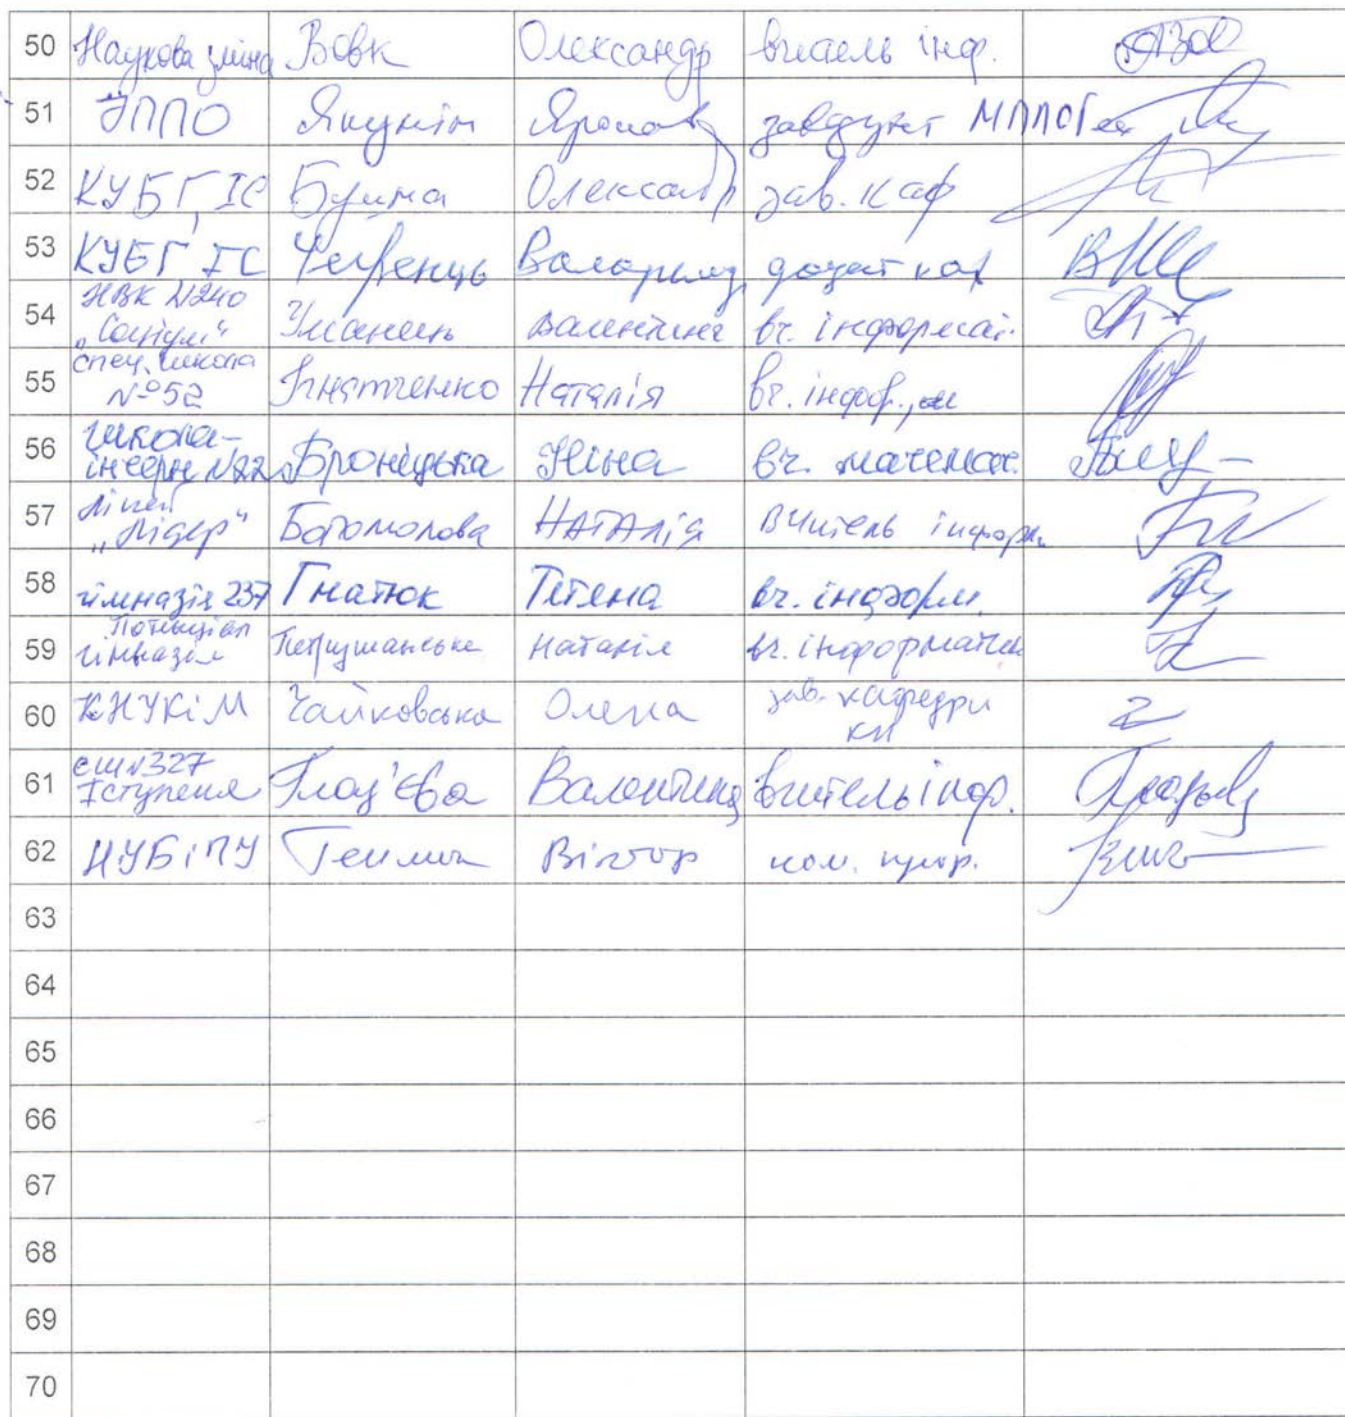 50 Наукова зміна Вовк Олександр вчитель інф.
51 ІППО Якунін завідувач
52 КУБГ, ІС Буйма Олександр зав. каф
53 КУБГ, ІС Володимир доцент каф
54 НВК №240 „Соціум“ Уманець Валентина вч. інформат.
55 Спец. школа №52 Ігнатченко Наталія вч. інформ.
56 школа-інтерн №22 Броніцька Ніна вч. математ.
57 Ліцей „Лідер“ Богомолова Наталія вчитель інформ.
58 гімназія 237 Гнатюк Тетяна вч. інформ.
59 гімназія Наталія вч. інформатики
60 КНУКіМ Чайковська Олена зав. кафедри КН
61 СШ №327 І ступеня Глаз'єва Валентина вчитель інф.
62 НУБіПУ Віктор
63
64
65
66
67
68
69
70